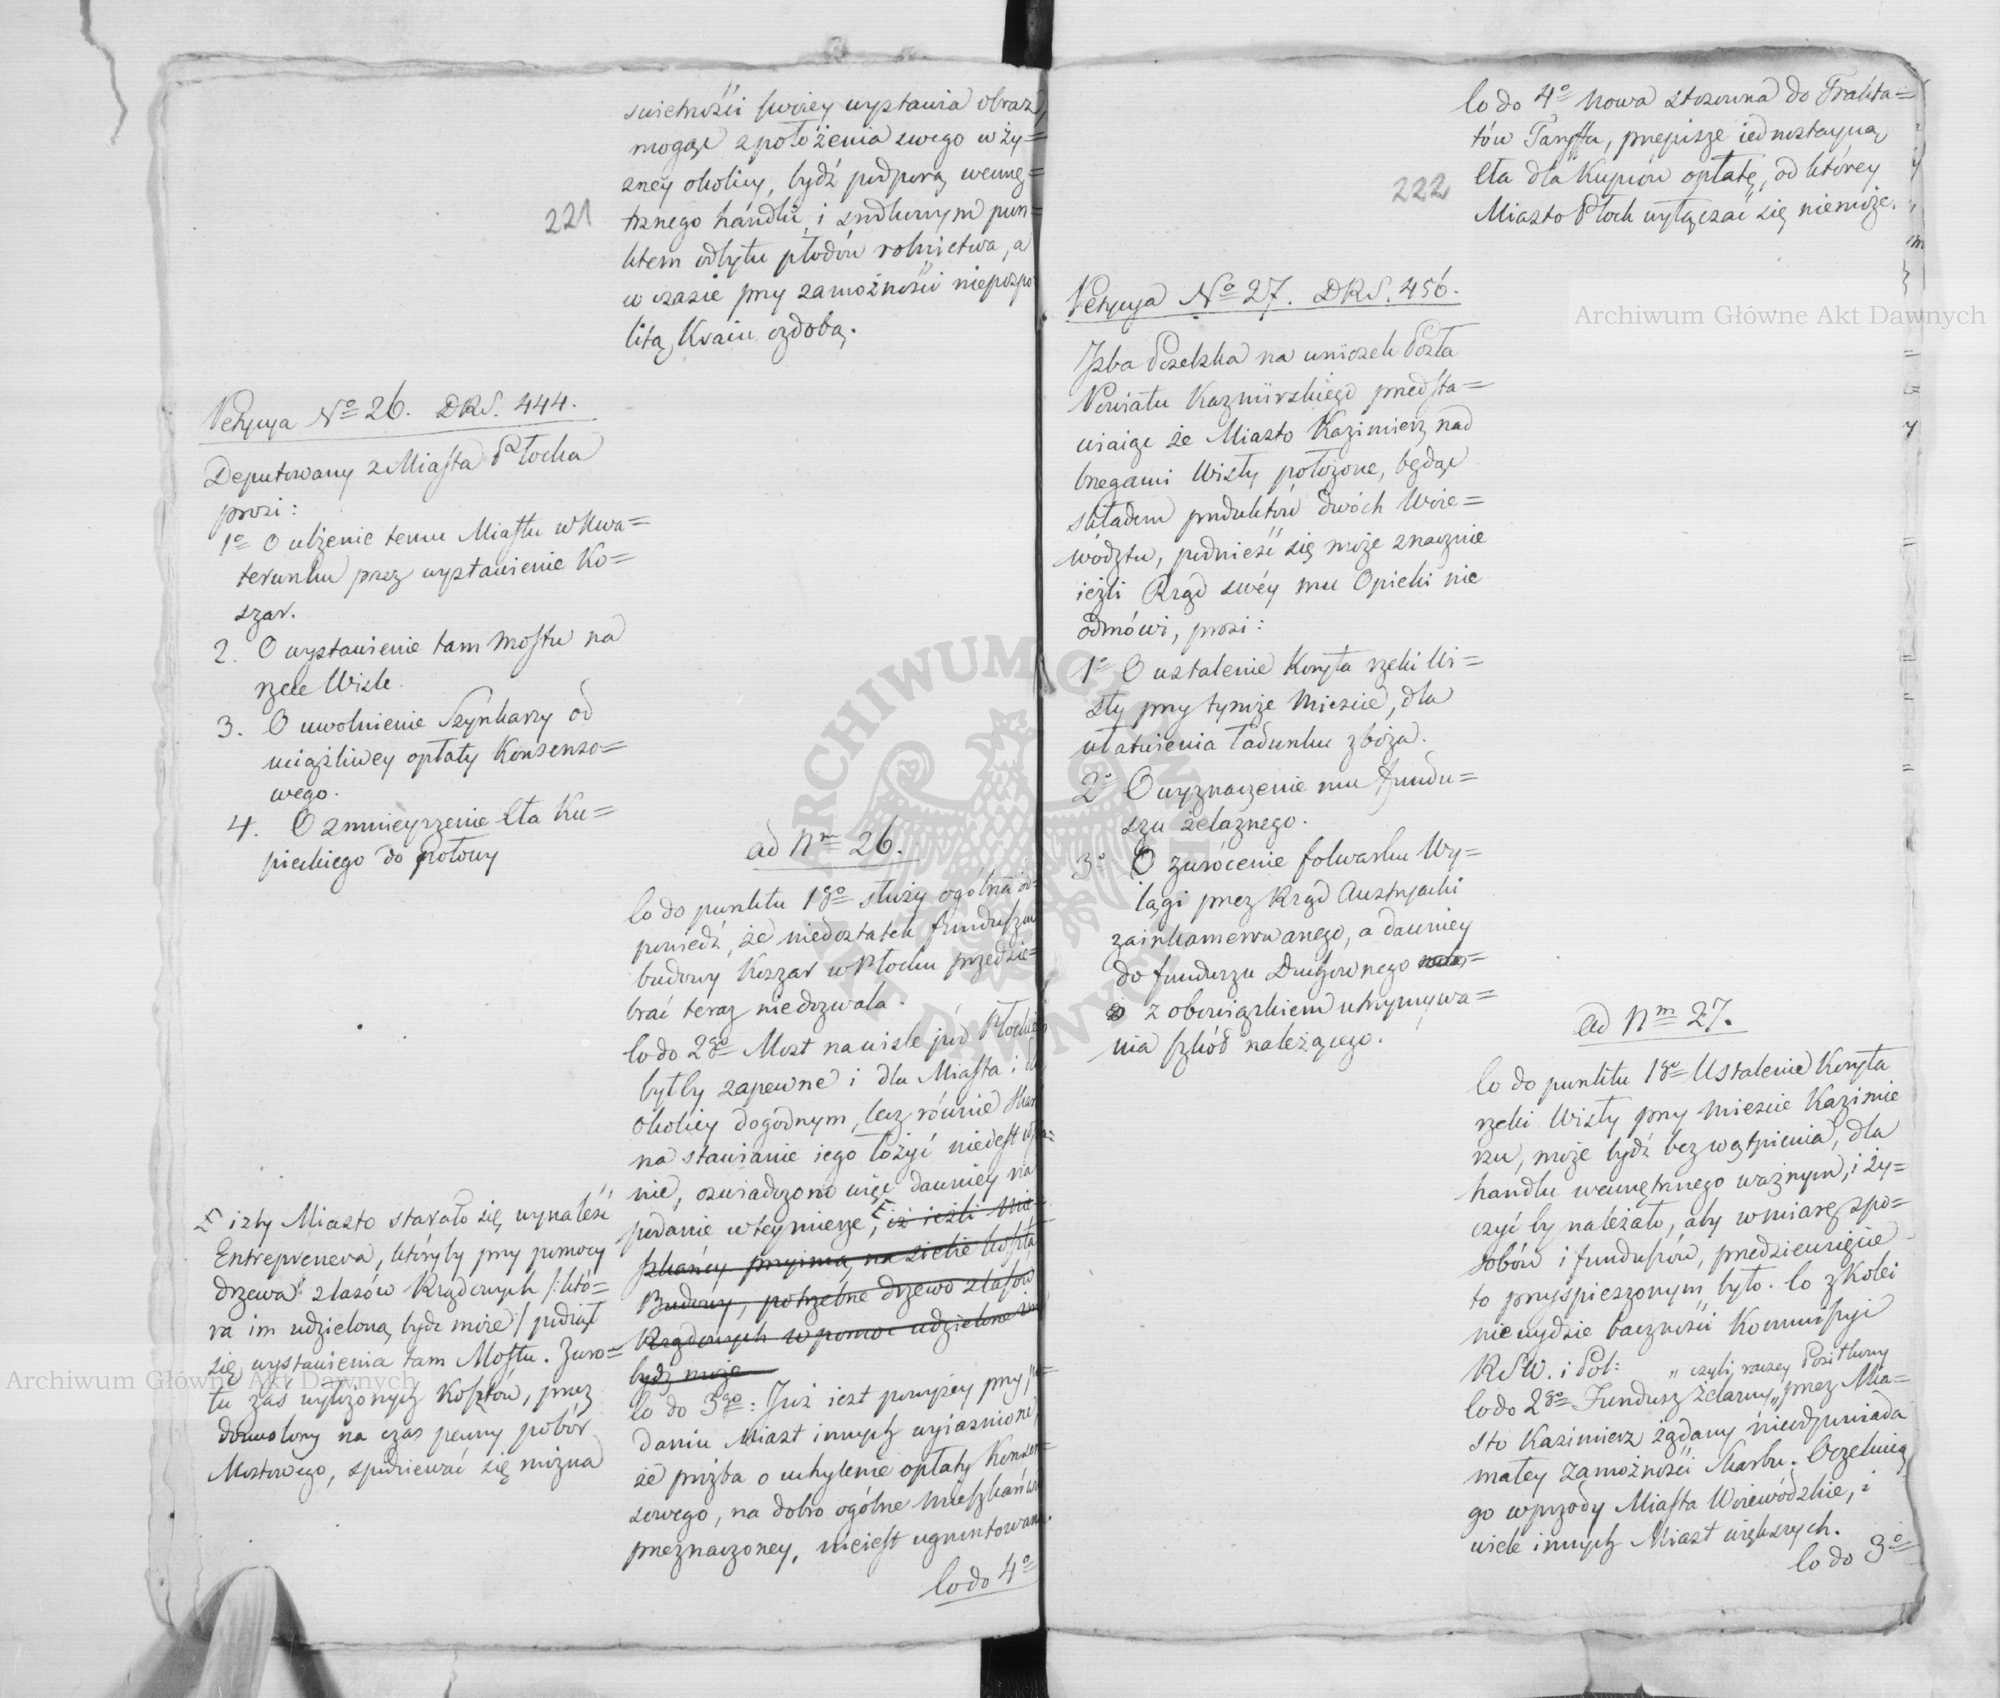 221
swietności swoiey wystawia obraz,
mogąc z położenia swego w ży-
zney okolicy, bydź podporą wewnę=
trznego handlu, i srodkowym pun=
ktem odbytu płodów rolnictwa, a
w czasie przy zamożności niepospo
litą Kraiu ozdobą.
Petycya No 26. DRS. 444.
Deputowany z Miasta Płocka
prosi:
1o O ulżenie temu Miastu w Kwa=
terunku przez wystawienie Ko=
szar.
2. O wystawienie tam Mostu na
rzece Wisle.
3. O uwolnienie Szynkarzy od
uciążliwey opłaty Konsenso=
wego.
4. O zmnieyszenie Cła Ku=
pieckiego do połowy
ad Nm 26.
Co do punktu 1go służy ogólna od=
powiedź, że niedostatek funduszu
budowy Koszar w Płocku przedsie=
brać teraz niedozwala.
Co do 2go Most na wisle pod Płockiem
byłby zapewne i dla Miasta i dla
okolicy dogodnym, lecz równie Skarb
na stawianie iego łożyć nieiest w sta=
nie, oswiadczono więc dawniey na
podanie w tey mierze, iż ieżli Mie=
szkańcy przyimą na siebie koszta
Budowy, potrzebne drzewo z lasów
Rządowych w pomoc udzielone im
bydź może
Co do 3go: Już iest powyżey przy po=
daniu Miast innych wyiasnione,
że prożba o uchylenie opłaty Konsen=
sowego, na dobro ogólne mieszkańców
przeznaczoney, nieiest ugruntowana.
Co do 4o
F iżby Miasto starało się wynaleść
Entreprenera, któryby przy pomocy
drzewa z lasów Rządowych /:któ=
ra im udzieloną bydź może:/ podiął
się wystawienia tam Mostu. Zwro=
tu zaś wyłożonych kosztów, przez
dozwolony na czas pewny pobór
Mostowego, spodziewać się można
222
Co do 4o nowa stosowna do Trakta=
tów Taryffa, przepisze iednostayną
Cła dla Kupców opłatę, od którey
Miasto Płock wyłączać się niemoże.
Petycya No 27. DRS. 456.
Izba Poselska na wniosek Posła
Powiatu Kazmirskiego przedsta=
wiaiąc że Miasto Kazimierz nad
brzegami Wisły położone, będąc
składem produktów dwóch Woie=
wództw, podnieść się może znacznie
ieżli Rząd swéy mu Opieki nie
odmówi, prosi:
1o O ustalenie Koryta rzeki Wi=
sły przy tymże Miescie, dla
ułatwienia ładunku zboża.
2o O wyznaczenie mu fundu=
szu żelaznego.
3o O zwrócenie folwarku Wy=
lągi przez Rząd Austryacki
zainkamerowanego, a dawniey
do funduszu Duchownego
z obowiązkiem utrzymywa=
nia szkół należącego.
ad Nm 27.
Co do punktu 1go Ustalenie Koryta
rzeki Wisły przy Miescie Kazimie
rzu, może bydź bez wątpienia, dla
handlu wewnętrznego ważnym, i ży=
czyć by należało, aby w miarę spo=
sobów i funduszów, przedsięwzięcie
to przyspieszonym było. Co z Kolei
nie uydzie baczności Kommissyi
R. S. W. i Pol:
" czyli raczey Posiłkowy
Co do 2go Fundusz żelazny " przez Mia=
sto Kazimierz żądany nieodpowiada
małey zamożności Skarbu. Oczekuią
go wprzody Miasta Woiewódzkie, i
wiele innych Miast większych.
Co do 3o
Archiwum Główne Akt Dawnych
Archiwum Główne Akt Dawnych
ARCHIWUM GŁÓWNE AKT DAWNYCH